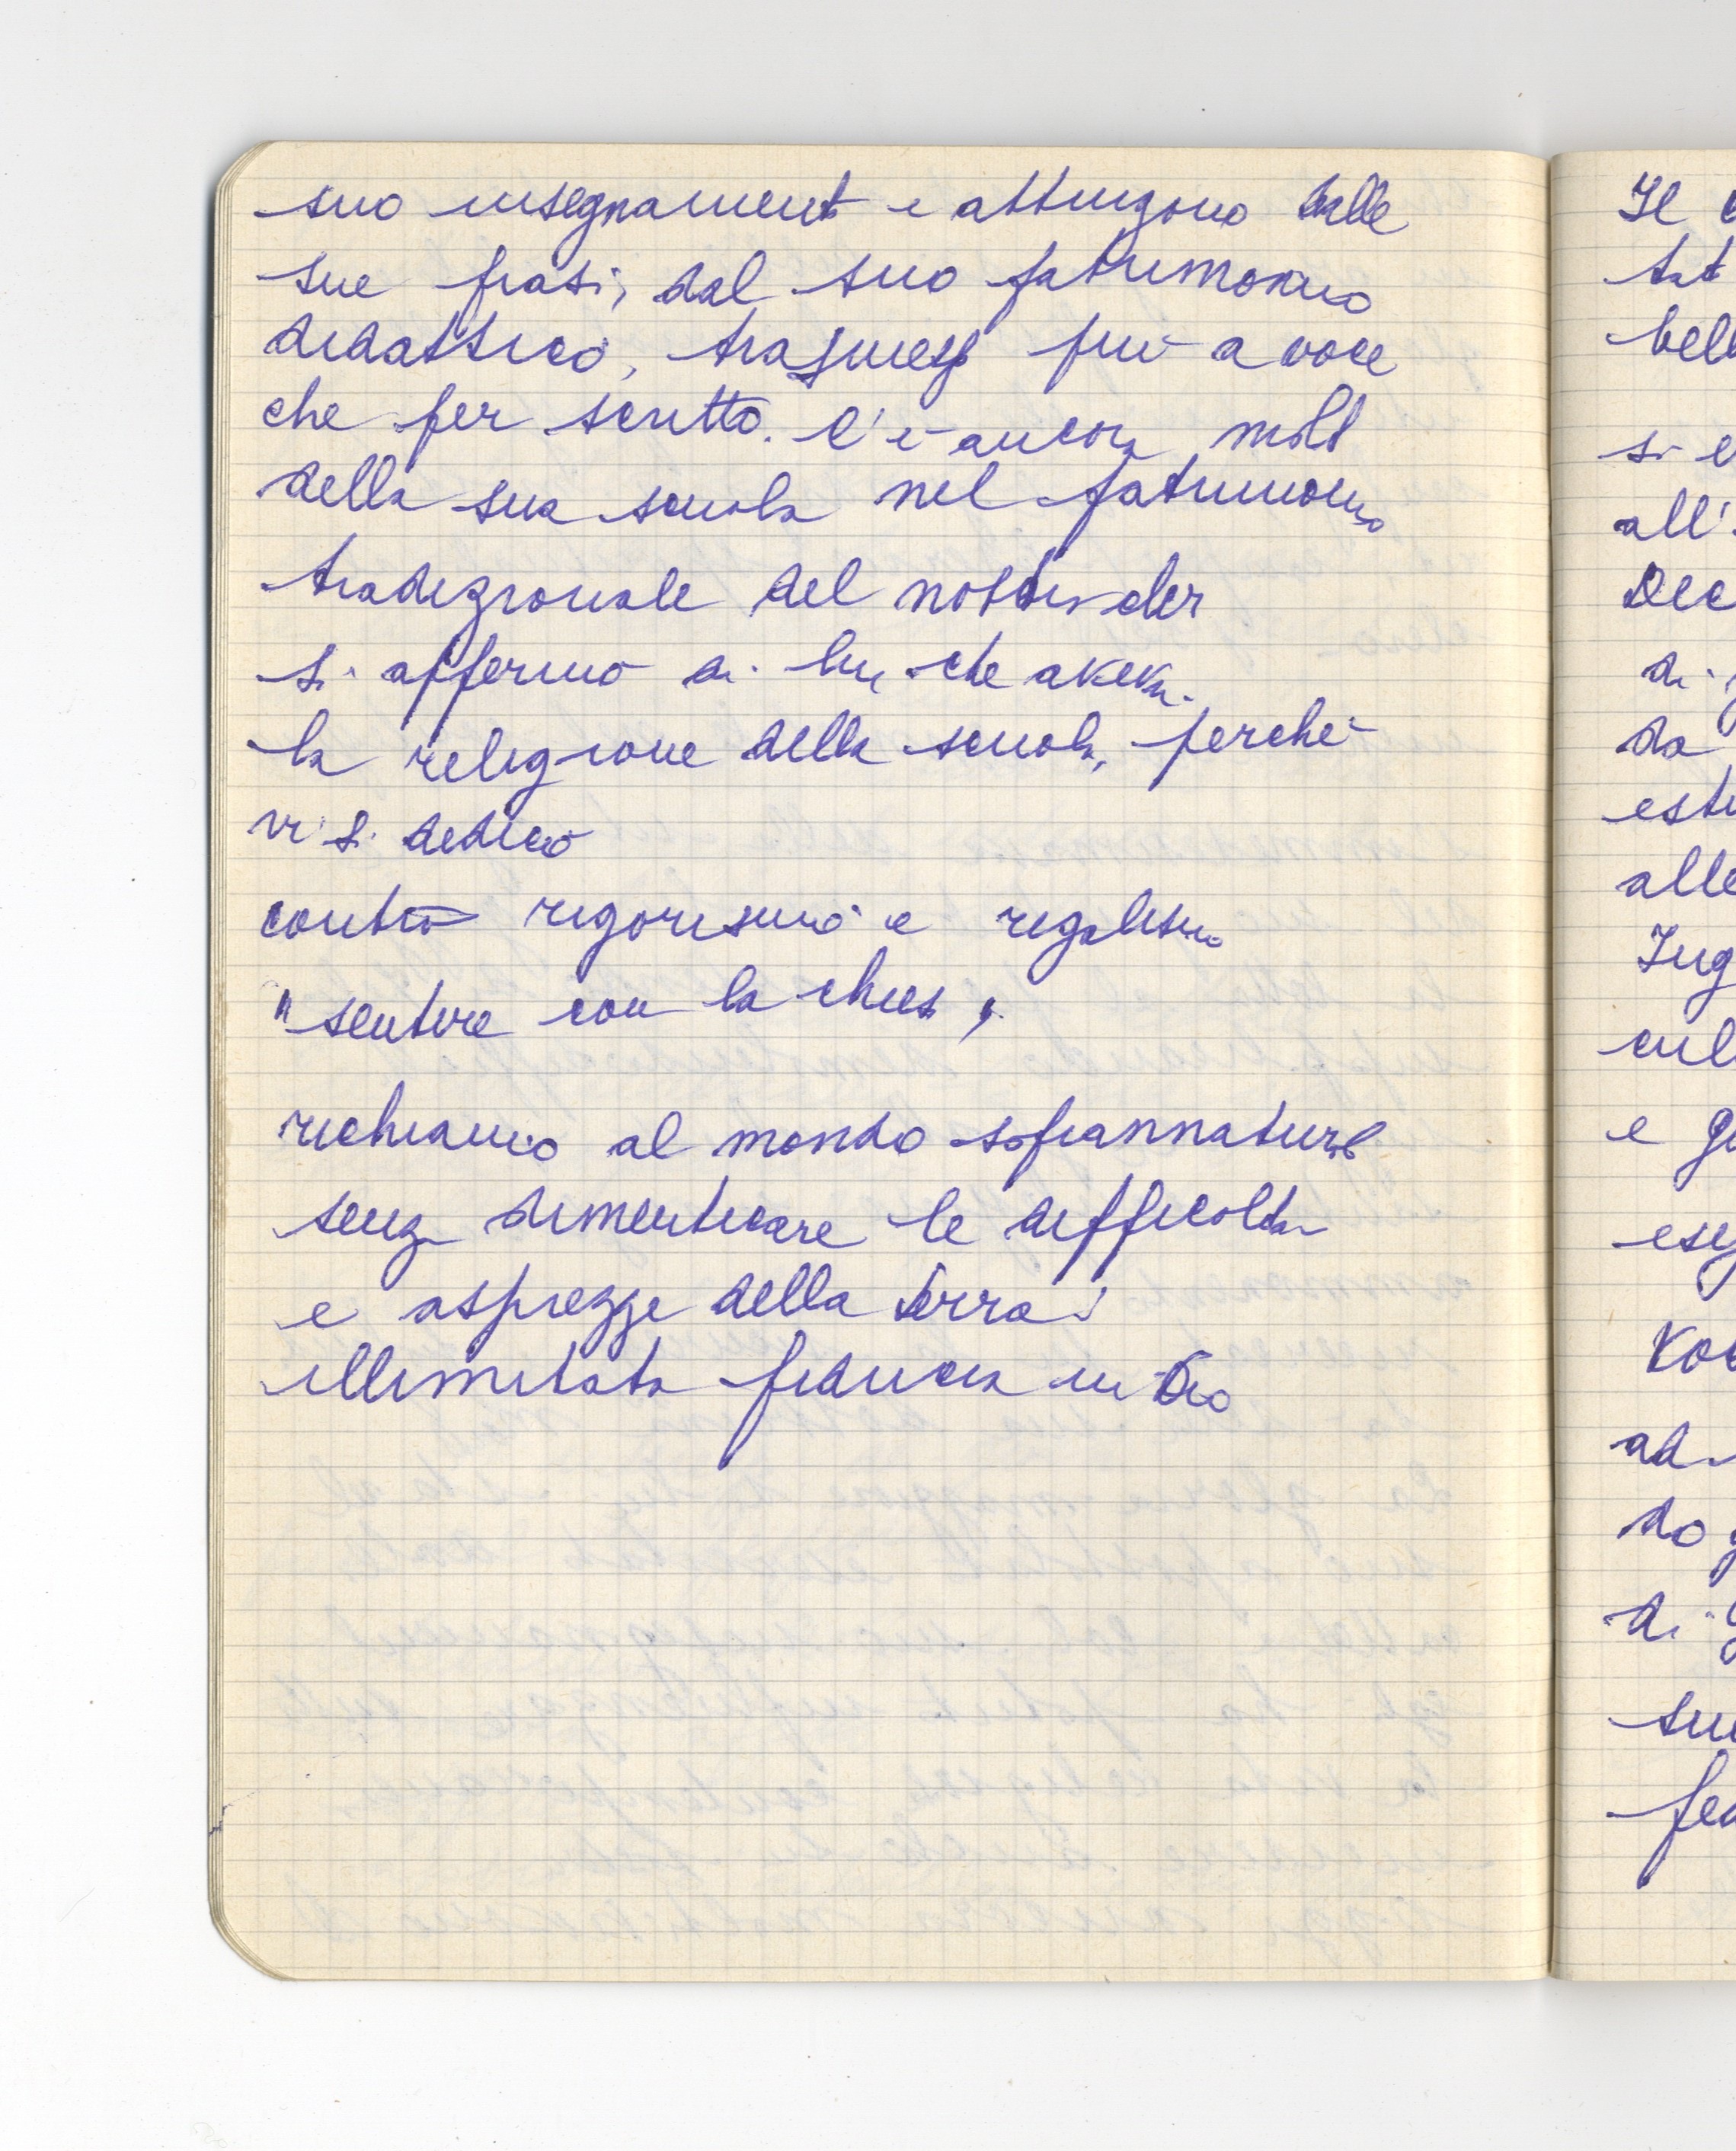 suo insegnament e attingono dalle
sue frasi, dal suo patrimonio
didattico, trasmess più a voce
che per scritto. C'è ancora molt
della sua scuola nel patrimonio
tradizionale del nostri der
si affermò di lui che aveva
la religione della scuola, perchè
vi si dedicò
contro rigorismo e regalismo
"sentire con la chies "
richiamo al mondo soprannatural
senza dimenticare le difficolta
e asprezze della terra;
illimitata fiducia in Dio
Il
tat
bell
si e
all'
Dec
di
da
est
alle
Ing
cul
e g
eseg
Voc
ad
do g
di g
sue
fed